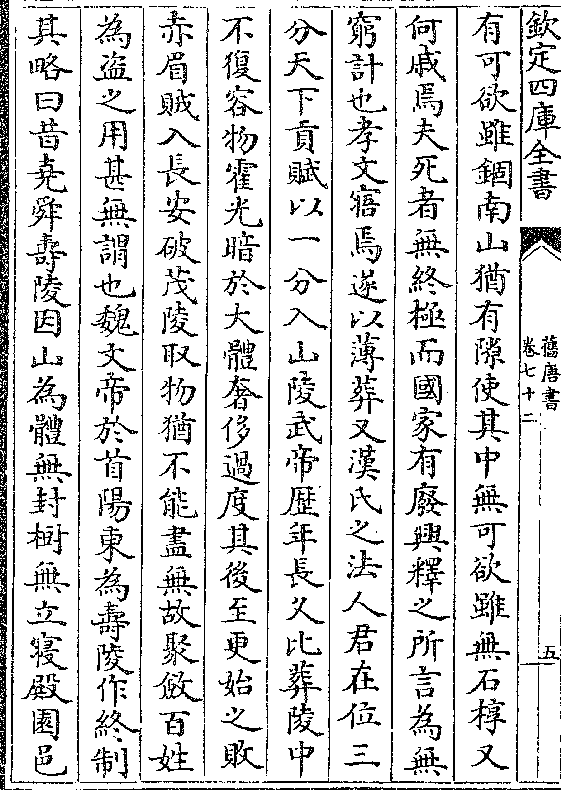 欽定四庫全書
舊唐書
卷七十二
五
有可欲雖錮南山猶有隙使其中無可欲雖無石椁又
何戚焉夫死者無終極而國家有廢興釋之所言為無
窮計也孝文寤焉遂以薄葬又漢氏之法人君在位三
分天下貢賦以一分入山陵武帝歴年長久比葬陵中
不復容物霍光暗於大體奢侈過度其後至更始之敗
赤眉賊入長安破茂陵取物猶不能盡無故聚斂百姓
為盗之用甚無謂也魏文帝於首陽東為壽陵作終制
其略曰昔堯舜壽陵因山為體無封樹無立寝殿園邑